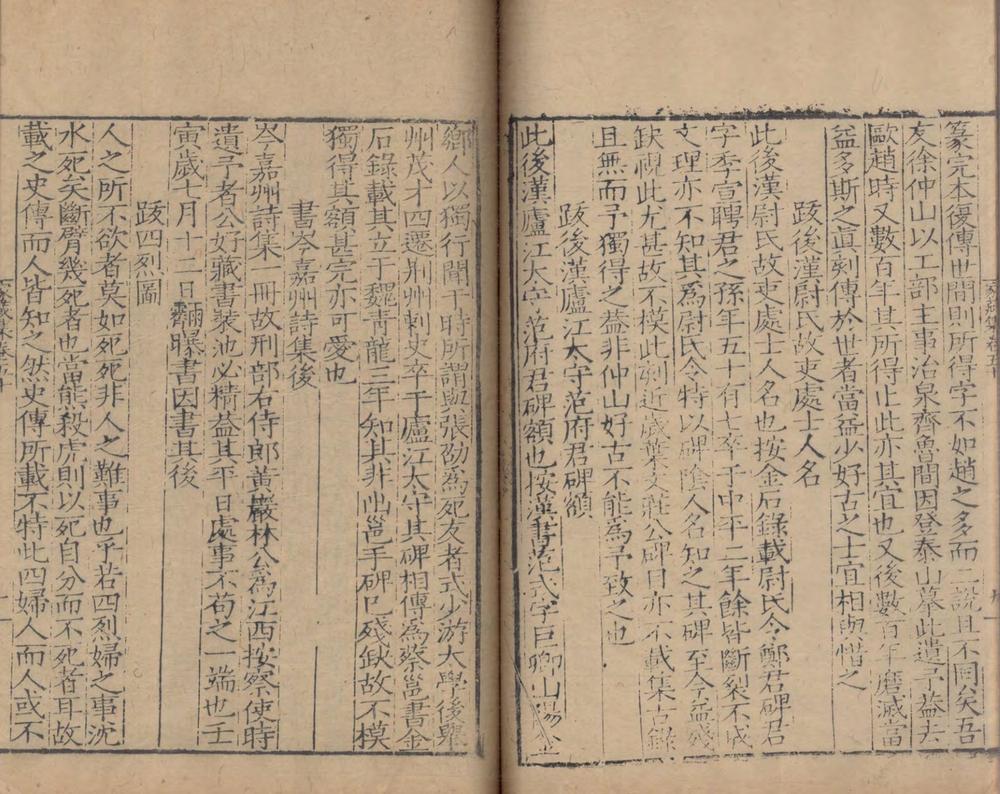 篆完本復傳世間則所得字不如趙之多而二說且不同矣吾
友徐仲山以工部主事治泉齊魯間因登泰山摹此遺予益去
歐趙時又數百年其所得止此亦其宜也又後數百年磨滅當
益多斯之真刻傳於世者當益少好古之士宜相與惜之
跋後漢尉氏故吏處士人名
此後漢尉氏故吏處士人名也按金石錄載尉氏令鄭君碑君
字季宣聘君之孫年五十有七卒于中平二年餘皆斷裂不成
文理亦不知其為尉氏令特以碑陰人名知之其碑至今益殘
缺視此尤甚故不模此刻近歲葉文莊公碑目亦不載集古錄
且無而予獨得之益非仲山好古不能為予致之也
跋後漢廬江太守范府君碑額
此後漢廬江太守范府君碑額也按漢書范式字巨卿山陽金
鄉人以獨行聞于時所謂與張劭為死友者式少游太學後舉
州茂才四遷荆州刺史卒于廬江太守其碑相傳為蔡邕書金
石錄載其立于魏青龍三年知其非出邕手碑已殘缺故不模
獨得其額甚完亦可愛也
書岑嘉州詩集後
岑嘉州詩集一冊故刑部右侍郎黃巖林公為江西按察使時
遺予者公好藏書裝池必精益其平日處事不苟之一端也壬
寅歲七月十二日齋曝書因書其後
跋四烈圖
人之所不欲者莫如死死非人之難事也乎若四烈婦之事沈
水死矣斷臂幾死者也當罷殺虎則以死自分而不死者耳故
載之史傳而人皆知之然史傳所載不特此四婦人而人或不